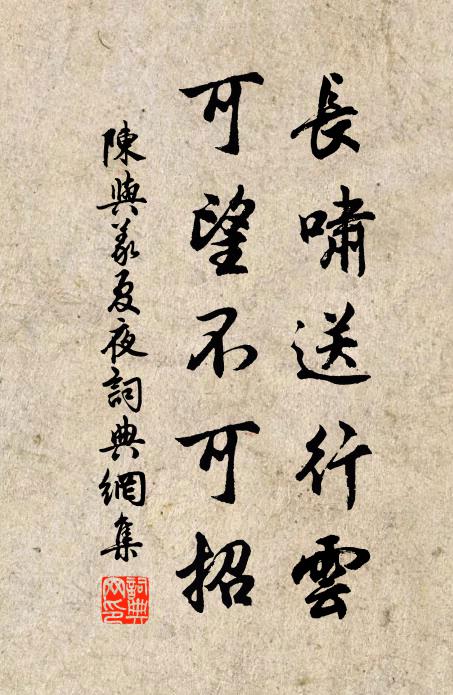 長嘯送行雲
可望不可招
陳與義夏夜詞典網集
詞典網印